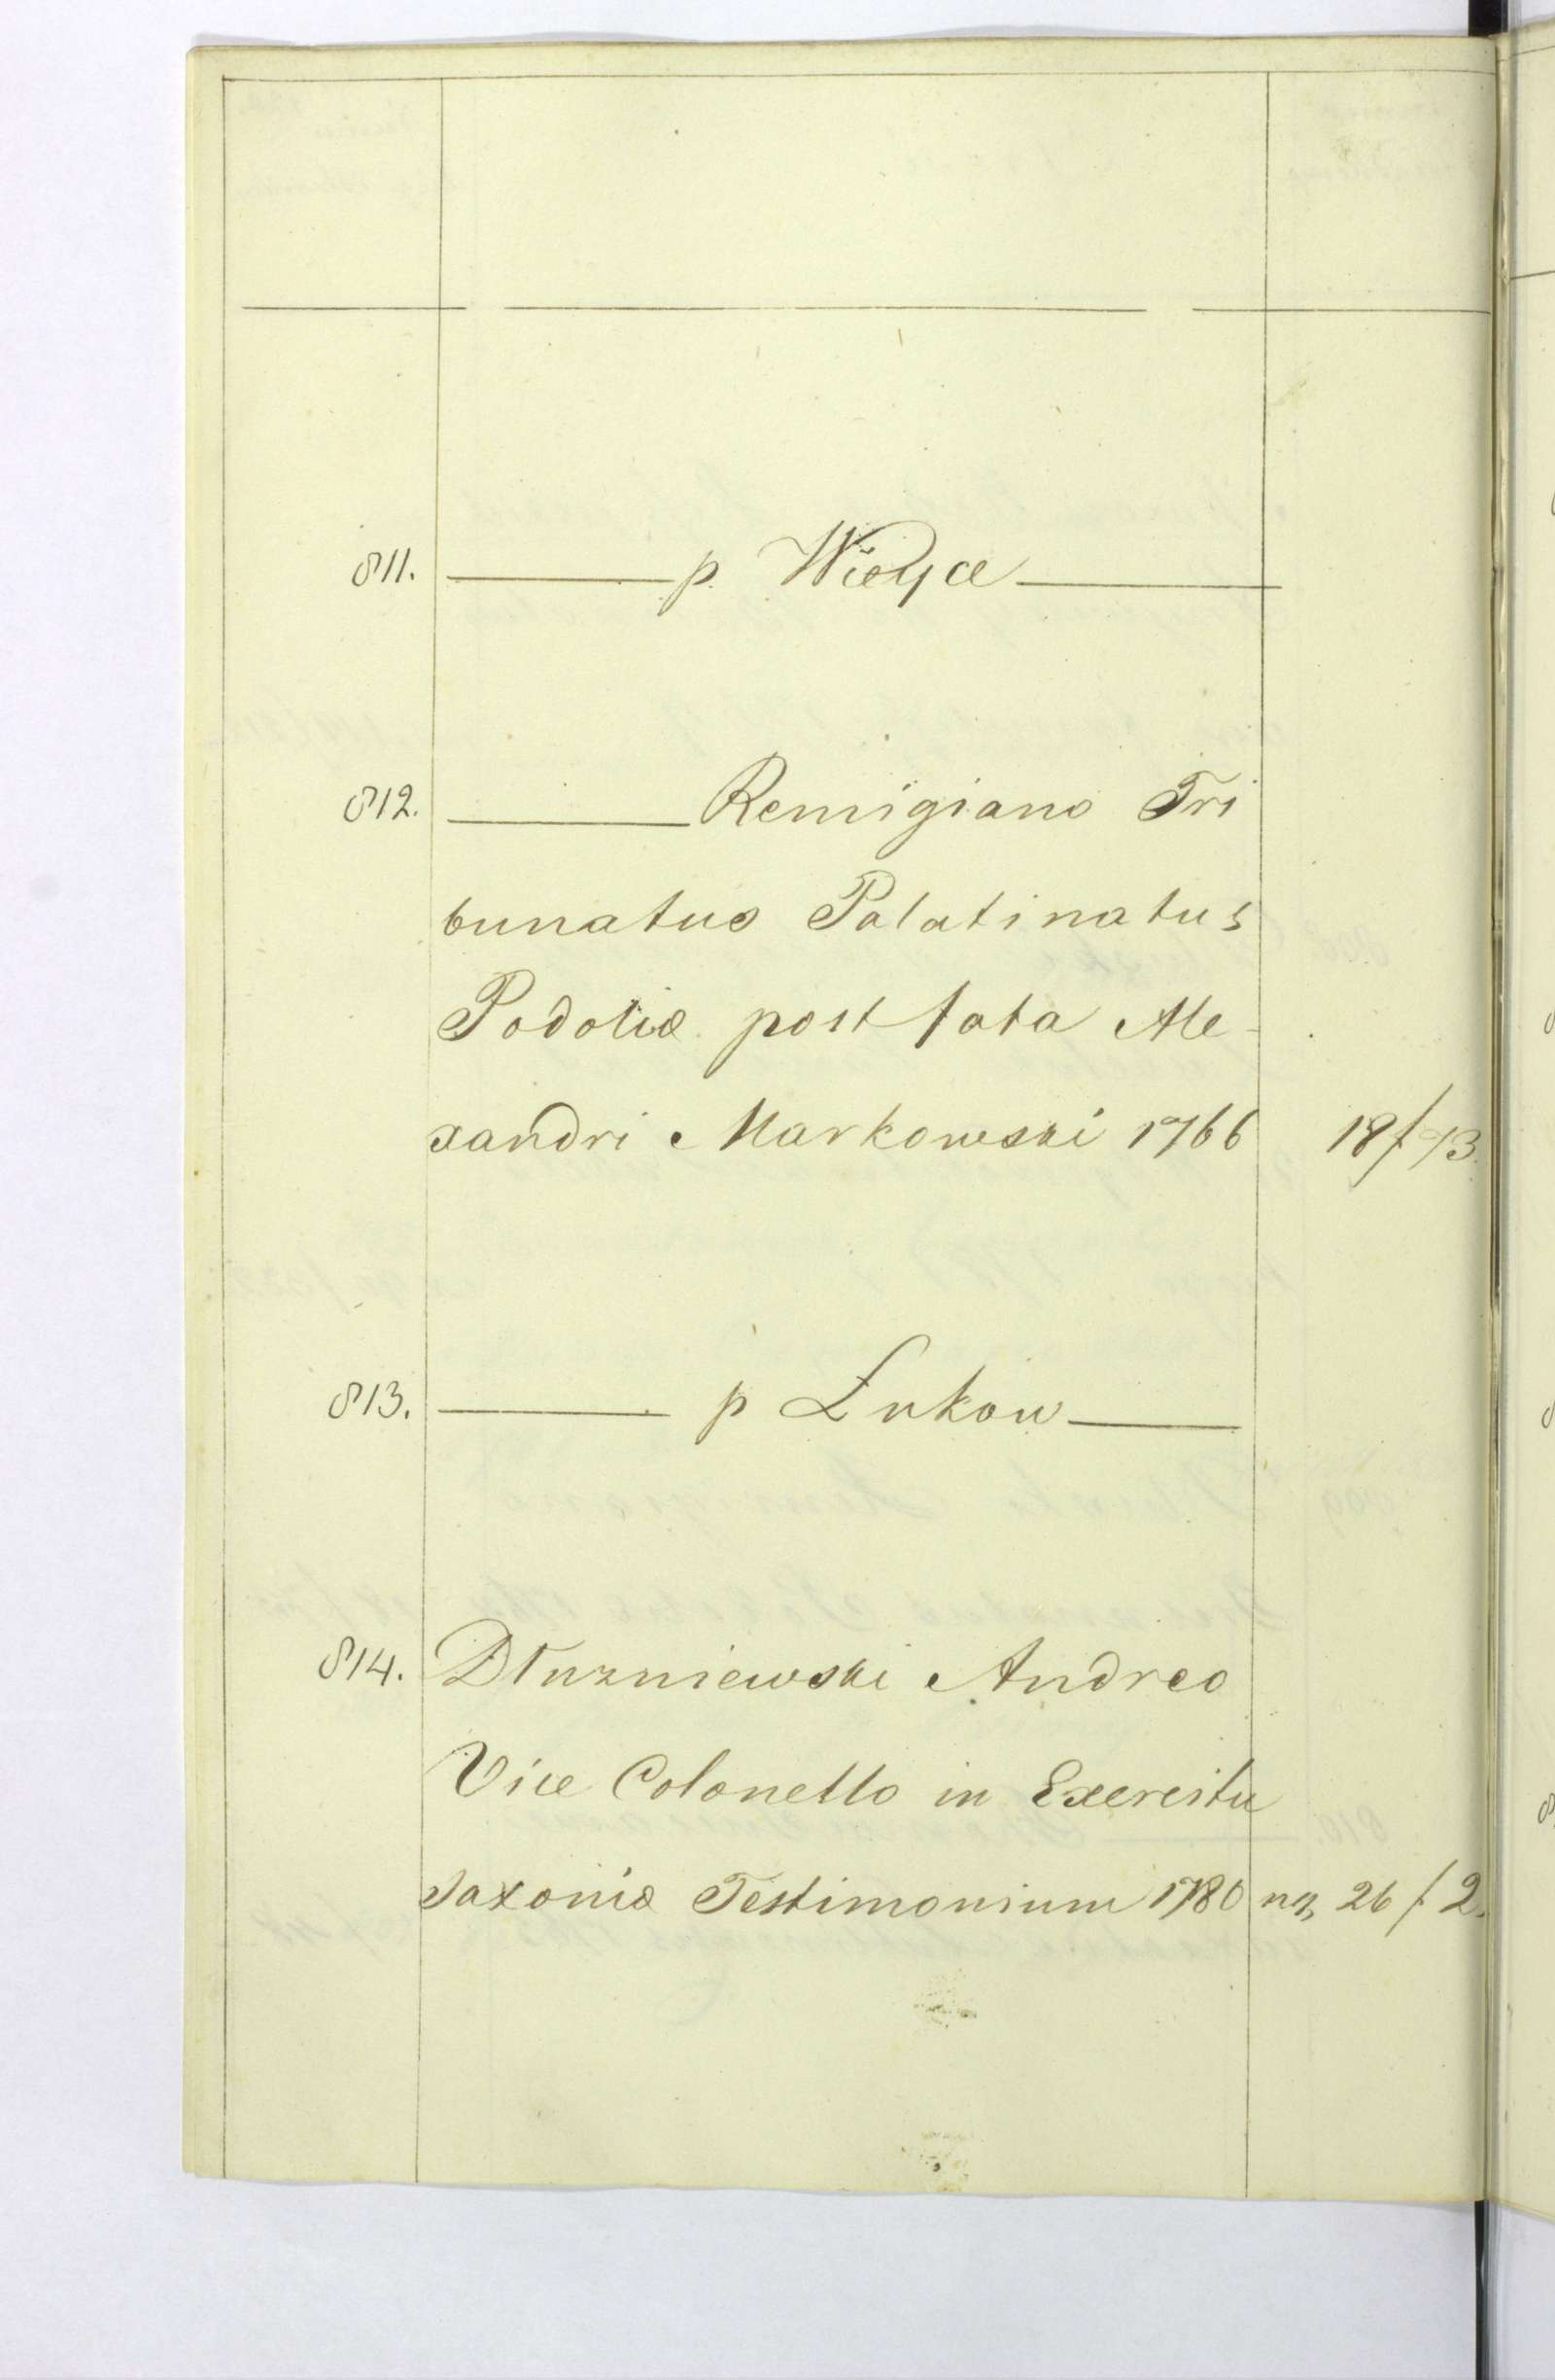 811. p. Wieyce
812. Remigiano Tri
bunatus Palatinatus
Podoliæ post fata Ale-
xandri Markowski 1766 18/73.
813. p Łukow
814. Dłuzniewski Andreo
Vice Colonello in Exercitu
Saxoniæ Testimonium 1780 26/2.